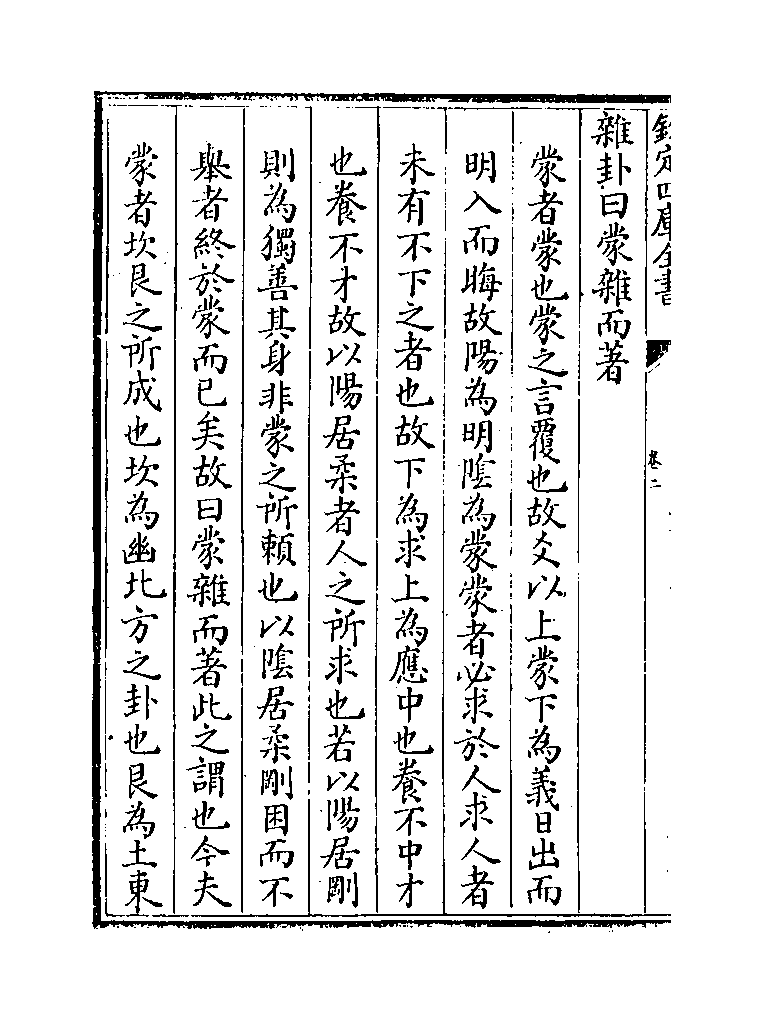 欽定四庫全書
卷二
雜卦曰蒙雜而著
蒙者蒙也蒙之言覆也故爻以上蒙下為義日出而
明入而晦故陽為明陰為蒙蒙者必求於人求人者
未有不下之者也故下為求上為應中也養不中才
也養不才故以陽居柔者人之所求也若以陽居剛
則為獨善其身非蒙之所賴也以陰居柔剛困而不
舉者終於蒙而已矣故曰蒙雜而著此之謂也今夫
蒙者坎艮之所成也坎為幽北方之卦也艮為土東